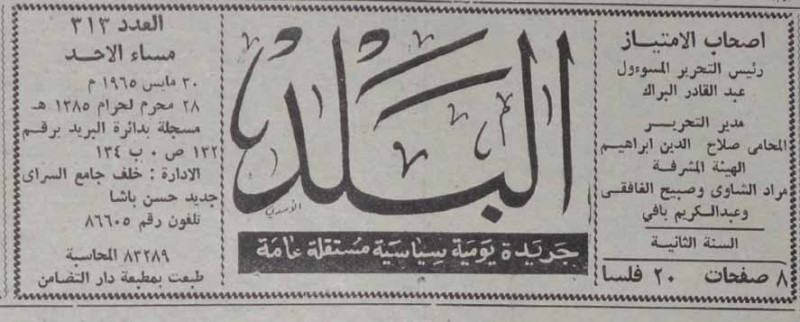 اصحاب الامتياز
رئيس التحرير المسوءول
عبد القادر البراك
مدير التحرير
المحامى صلاح الدين ابراهيم
الهيئة المشرفة
مراد الشاوى وصبيح الغافقى
وعبدالكريم بافي
السنة الثانية
٨ صفحات ٢٠ فلسا
البلد
الأسدي
جريدة يومية سياسية مستقلة عامة
العدد ٣١٣
مساء الاحد
٣٠ مايس ١٩٦٥ م
٢٨ محرم لحرام ١٣٨٥ هـ
مسجلة بدائرة البريد برقم
١٣٢ ص ٠ ب ١٣٤
الادارة : خلف جامع السراى
جديد حسن باشا
تلفون رقم ٨٦٦٠٥
٨٣٢٨٩ المحاسبة
طبعت بمطبعة دار التضامن